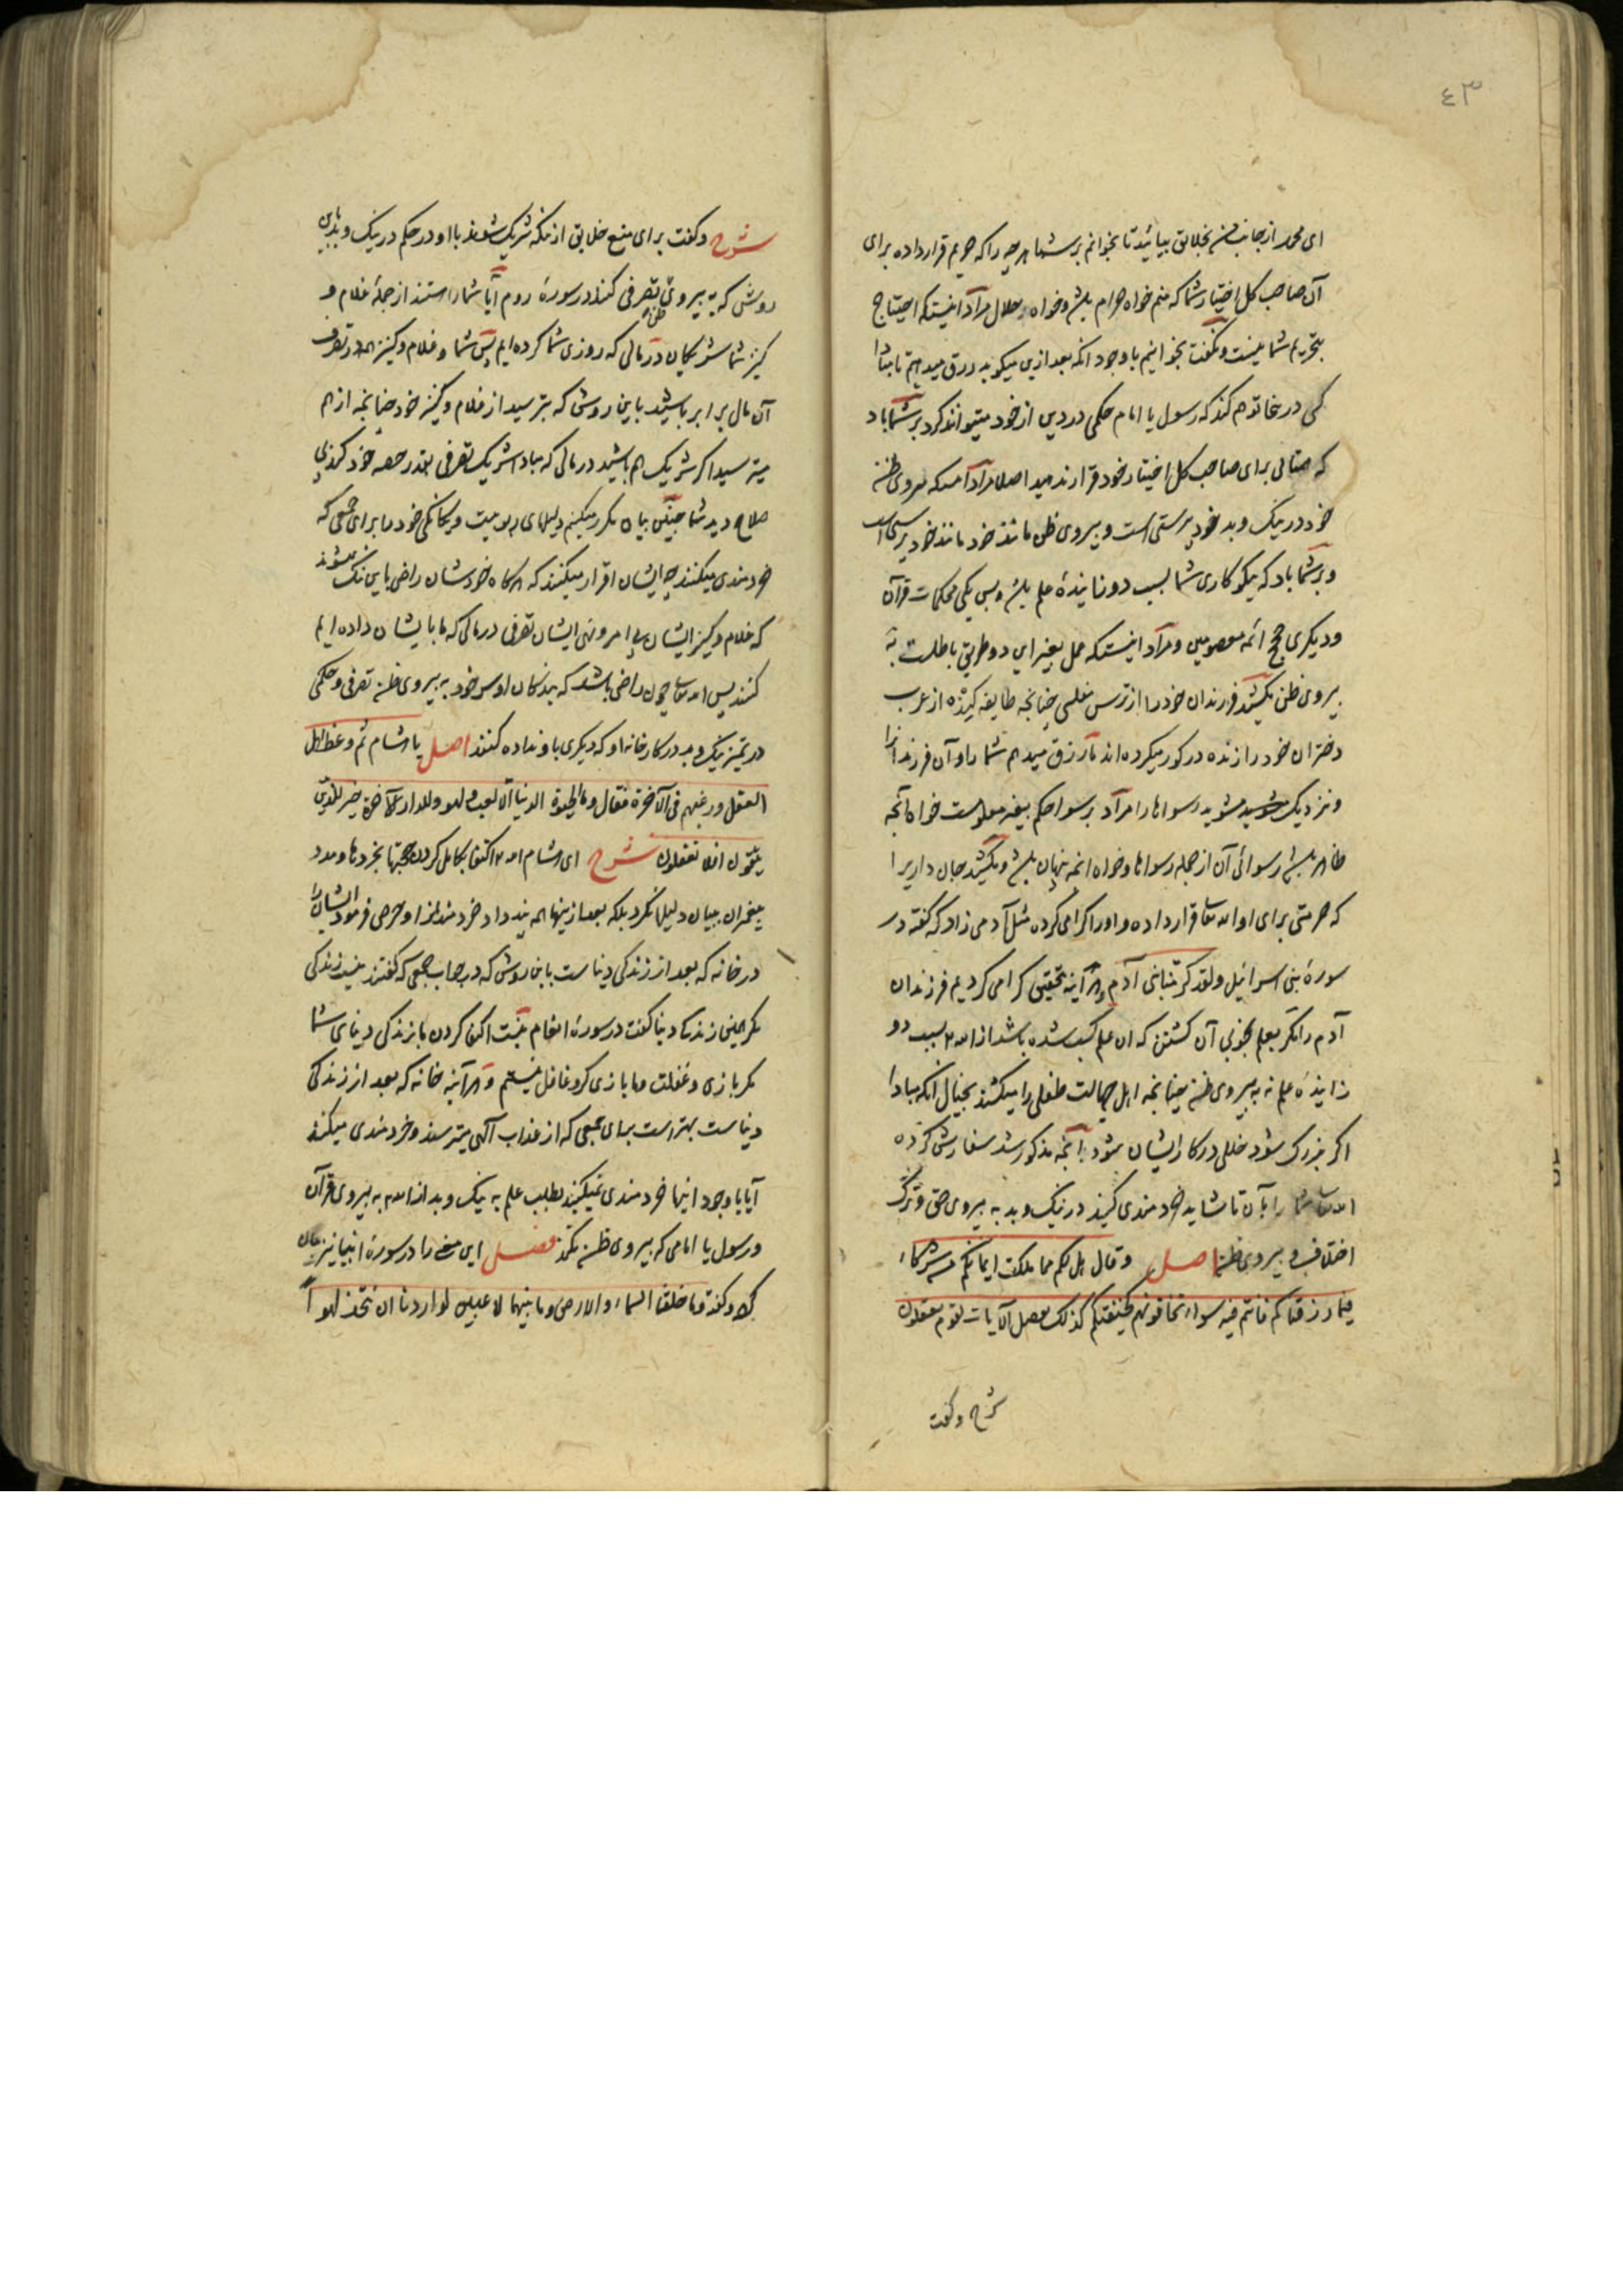 ٤٣
ای محمد از جانب من بخلایق بیائید تا بخوانم بر شما هر چه را که حریم قرار داده برای
آن صاحب کل اختیار شما که منم خواه حرام باشد و خواه حلال مراد اینست که احتیاج
بتحریم شما نیست و نگفت بخوانیم با وجود انکه بعد ازین میکوید رزق میدهیم تا مبادا
کسی در خاتوهم کند که رسول یا امام حکمی در دین از خود میتواند کرد بر شما باد
که همتائی برای صاحب کل اختیار خود قرار ندهید اصلا مراد آنست که پیروی ظن
خود در نیک و بد خود پرستی است و پیروی ظن مانند خود مانند خود پرستی است
و بر شما باد که نیکو کاری شما بسبب دو زاینده علم باشد و بس یکی محکمات قرآن
و دیگری حجج ائمه معصومین و مراد اینست که عمل بغیر این دو طریق باطلست نه
پیروی ظن نکشید فرزندان خود را از ترس مفلسی چنانچه طایفه کنده از عرب
دختران خود را زنده در کور میکرده اند ما رزق میدهیم شما را و آن فرزندانرا
و نزدیک مشوید رسوائها را مراد بر رسوا حکم بغیر معلومست خواه آنچه
ظاهر باشد رسوائی آن از جمله رسوائها و خواه انچه پنهان باشد و نکشید جان داریرا
که حرمتی برای او الله تعالی قرار داده و او را کرامی کرده مثل آدمی زاد که گفته در
سوره بنی اسرائیل ولقد کرمنا بنی آدم و هر آینه بتحقیق کرامی کردیم فرزندان
آدم را مگر بعلم بخوبی آن کشتن که ان علم کسب شده باشد از الله تعالی بسبب دو
زاینده علم نه به پیروی ظن چنانچه اهل جهالت طفلی را میکشند بخیال انکه مبادا
اکر بزرک شود خللی در کار ایشان شود آنچه مذکور شد سفارش کرده
الله تعالی شما را بآن تا شاید خردمندی کنید در نیک و بد به پیروی حق و ترک
اختلاف و پیروی ظن اصل وقال هل لکم مما ملکت ایمانکم من شرکاء
فیما رزقناکم فانتم فیه سواء تخافونهم کخیفتکم کذلک نفصل الآیات لقوم یعقلون
شرح و گفت
شرح و گفت برای منع خلایق از انکه شریک شوند با او در حکم در نیک و بد باین
روشی که به پیروی ظن تصرفی کنند در سوره روم آیا شما را هستند از جمله غلام و
کنیز شما شریکان در مالی که روزی شما کرده ایم پس شما و غلام و کنیز همه در تصرف
آن مال برابر باشید باین روش که بترسید از غلام و کنیز خود چنانچه از هم
میترسید اکر شریک هم باشید در مالی که مبادا شریک تصرفی بقدر حصه خود کند بی
صلاح دید شما چنین بیان مکرر میکنیم دلیلهای ربوبیت و یکانکی خود را برای جمعی که
خردمندی میکنند چه ایشان اقرار میکنند که هرکاه خودشان راضی باین ننک نمیشوند
که غلام و کنیز ایشان بی امر و نهی ایشان تصرفی در مالی که ما بایشان داده ایم
کنند پس الله تعالی چون راضی باشد که بندکان او سر خود به پیروی ظن تصرفی و حکمی
در تمیز نیک و بد در کارخانه او که دیگری باو نداده کنند اصل یا هشام ثم وعظ اهل
العقل ورغبهم فی الآخرة فقال وما الحیوة الدنیا الا لعب ولهو وللدار الآخرة خیر للذین
یتقون افلا تعقلون شرح ای هشام الله تعالی اکتفا بکامل کردن حجتها بخردها و مدد
پیغمران ببیان و دلیلها نکرد بلکه بعد ازینها همه پند داد خردمندانرا و حرص فرمود ایشان را
در خانه که بعد از زندکی دنیاست باین روش که در جواب جمعی که گفتند نیست زندکی
مکر همین زندکی دنیا گفت در سوره انعام نیست اکتفا کردن بازندکی دنیای شما
مکر بازی و غفلت و ما بازی کر و غافل نیستیم و هر آینه خانه که بعد از زندکی
دنیاست بهتر است برای جمعی که از عذاب آلهی میترسند و خردمندی میکنند
آیا با وجود اینها خردمندی نمیکنید بطلب علم به نیک و بد از الله به پیروی قرآن
و رسول یا امامی که پیروی ظن نکند فصل این معنی را در سوره انبیا نیز بیان
کرد و گفته وما خلقنا السماء والارض وما بینهما لاعبین لو اردنا ان نتخذ لهواً